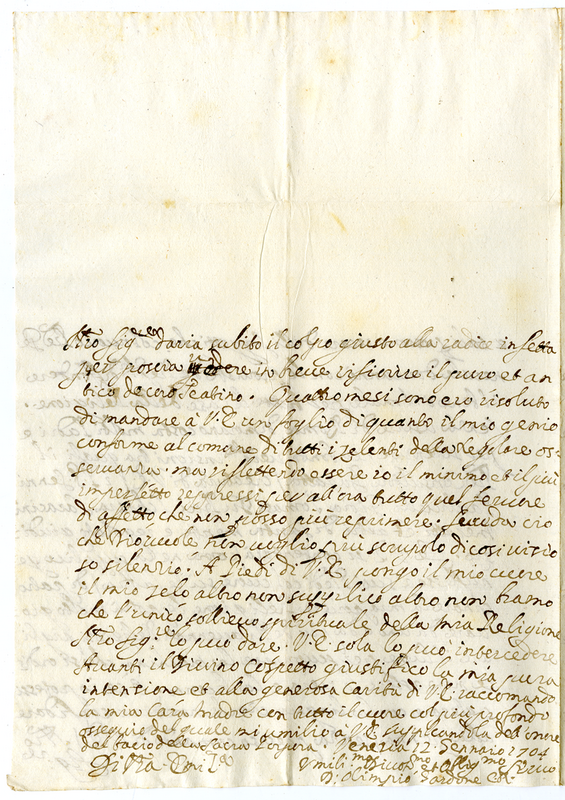 Nro Sig.re daria subito il colpo giusto alla radice infetta
per poscia vedere in breve rifiorire il puro et an
tico decoro Teatino. Quattro mesi sono ero risoluto
di mandare a V.E. un foglio di quanto il mio genio
conforme al comune di tutti i zelenti della regolare os=
servanza. ma riflettendo essere io il minimo et il più
imperfetto repressi per allora tutto quel fervore
di affetto che non posso più reprimere. Seceda ciò
che Dio vuole non voglio più scrupolo di così vizio
so silenzio. A Piedi di V.E. pongo il mio cuore
il mio zelo altro non supplico altro non bramo
che l'unico sollievo spirituale della mia Religione
Nro Sig.re lo può dare. V.E. sola lo può intercedere
Avanti il Divino Cospetto giustifico la mia pura
intensione et alla generosa Carità di V.E. raccomando
la mia Cara Madre con tutto il cuore col più profondo
ossequio del quale mi umilio a V.E. supplicandola dell'onore
del bacio della Sacra Porpora. Venezia 12. Gennaro 1704
Di V.ra Emi.
Umili.mo Divot.mo et Oblig.mo Servo
D. Olimpio